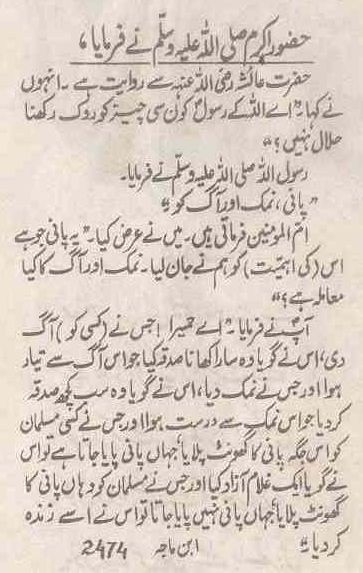 حضور اکرم صلی اللہ علیہ وسلم نے فرمایا،
حضرت عائشہ رضی اللہ عنہا سے روایت ہے۔ انہوں
نے کہا۔ "اے اللہ کے رسول! کون سی چیز کو روک رکھنا
حلال نہیں؟"
رسول اللہ صلی اللہ علیہ وسلم نے فرمایا۔
"پانی، نمک اور آگ کو"
ام المومنین فرماتی ہیں۔ میں نے عرض کیا۔ "یہ پانی جو ہے
اس (کی اہمیت) کو ہم نے جان لیا۔ نمک اور آگ کا کیا
معاملہ ہے؟"
آپ نے فرمایا۔ "اے حمیرا! جس نے (کسی کو) آگ
دی، اس نے گویا وہ سارا کھانا صدقہ کیا جو اس آگ سے تیار
ہوا اور جس نے نمک دیا، اس نے گویا وہ سب کچھ صدقہ
کر دیا جو اس نمک سے درست ہوا اور جس نے کسی مسلمان
کو اس جگہ پانی کا گھونٹ پلایا، جہاں پانی پایا جاتا ہے تو اس
نے گویا ایک غلام آزاد کیا اور جس نے مسلمان کو وہاں پانی کا
گھونٹ پلایا، جہاں پانی نہیں پایا جاتا تو اس نے اسے زندہ
کر دیا۔" ابن ماجہ 2474